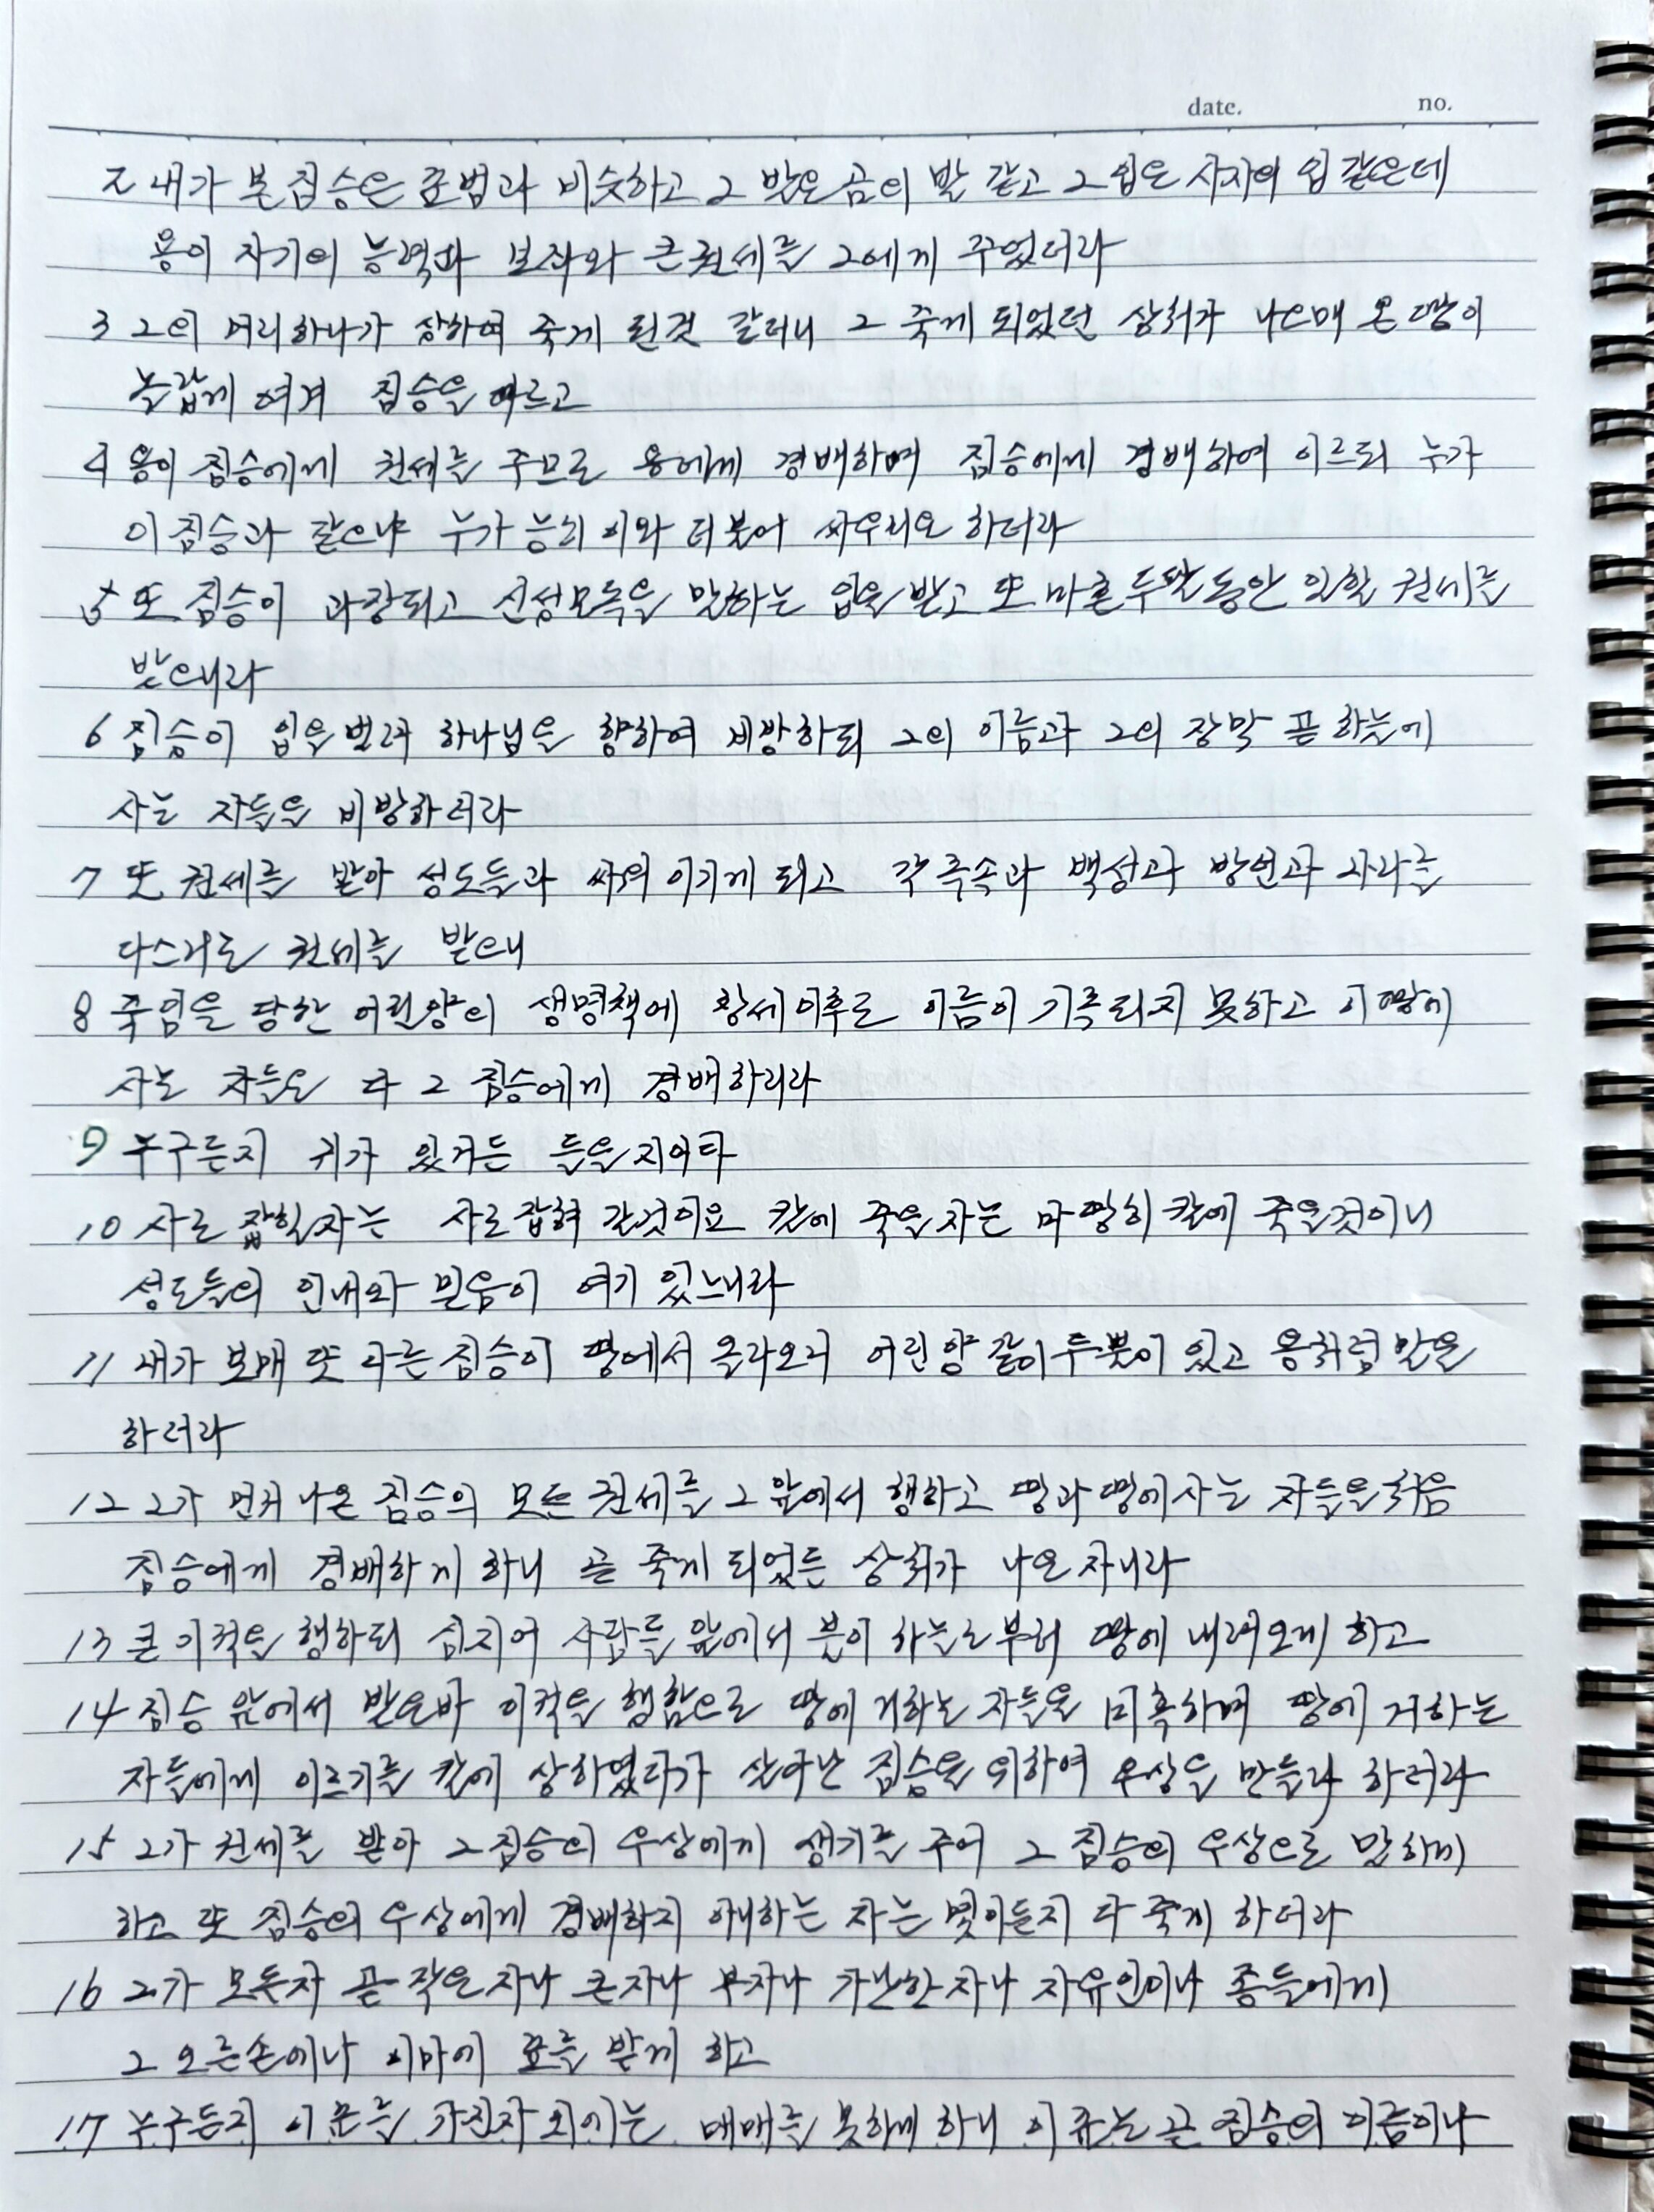 date. no.
2 내가 본 짐승은 표범과 비슷하고 그 발은 곰의 발 같고 그 입은 사자의 입 같은데
용이 자기의 능력과 보좌와 큰 권세를 그에게 주었더라
3 그의 머리 하나가 상하여 죽게 된것 같더니 그 죽게 되었던 상처가 나으매 온 땅이
놀랍게 여겨 짐승을 따르고
4 용이 짐승에게 권세를 주므로 용에게 경배하며 짐승에게 경배하여 이르되 누가
이 짐승과 같으냐 누가 능히 이와 더불어 싸우리요 하더라
5 또 짐승이 과장되고 신성모독을 말하는 입을 받고 또 마흔두달 동안 일할 권세를
받으니라
6 짐승이 입을 벌려 하나님을 향하여 비방하되 그의 이름과 그의 장막 곧 하늘에
사는 자들을 비방하더라
7 또 권세를 받아 성도들과 싸워 이기게 되고 각 족속과 백성과 방언과 나라를
다스리는 권세를 받으니
8 죽임을 당한 어린양의 생명책에 창세이후로 이름이 기록되지 못하고 이 땅에
사는 자들은 다 그 짐승에게 경배하리라
9 누구든지 귀가 있거든 들을지어다
10 사로 잡힐자는 사로잡혀 갈것이요 칼에 죽을 자는 마땅히 칼에 죽을것이니
성도들의 인내와 믿음이 여기 있느니라
11 내가 보매 또 다른 짐승이 땅에서 올라오니 어린양 같이 두뿔이 있고 용처럼 말을
하더라
12 그가 먼저 나온 짐승의 모든 권세를 그 앞에서 행하고 땅과 땅에 사는 자들을 처음
짐승에게 경배하게 하니 곧 죽게 되었든 상처가 나은 자니라
13 큰 이적을 행하되 심지어 사람들 앞에서 불이 하늘로부터 땅에 내려오게 하고
14 짐승 앞에서 받은바 이적을 행함으로 땅에 거하는 자들을 미혹하며 땅에 거하는
자들에게 이르기를 칼에 상하였다가 살아난 짐승을 위하여 우상을 만들라 하더라
15 그가 권세를 받아 그 짐승의 우상에게 생기를 주어 그 짐승의 우상으로 말하게
하고 또 짐승의 우상에게 경배하지 아니하는 자는 몇이든지 다 죽게 하더라
16 그가 모든자 곧 작은 자나 큰자나 부자나 가난한 자나 자유인이나 종들에게
그 오른손에나 이마에 표를 받게 하고
17 누구든지 이 표를 가진자 외에는 매매를 못하게 하니 이 표는 곧 짐승의 이름이나